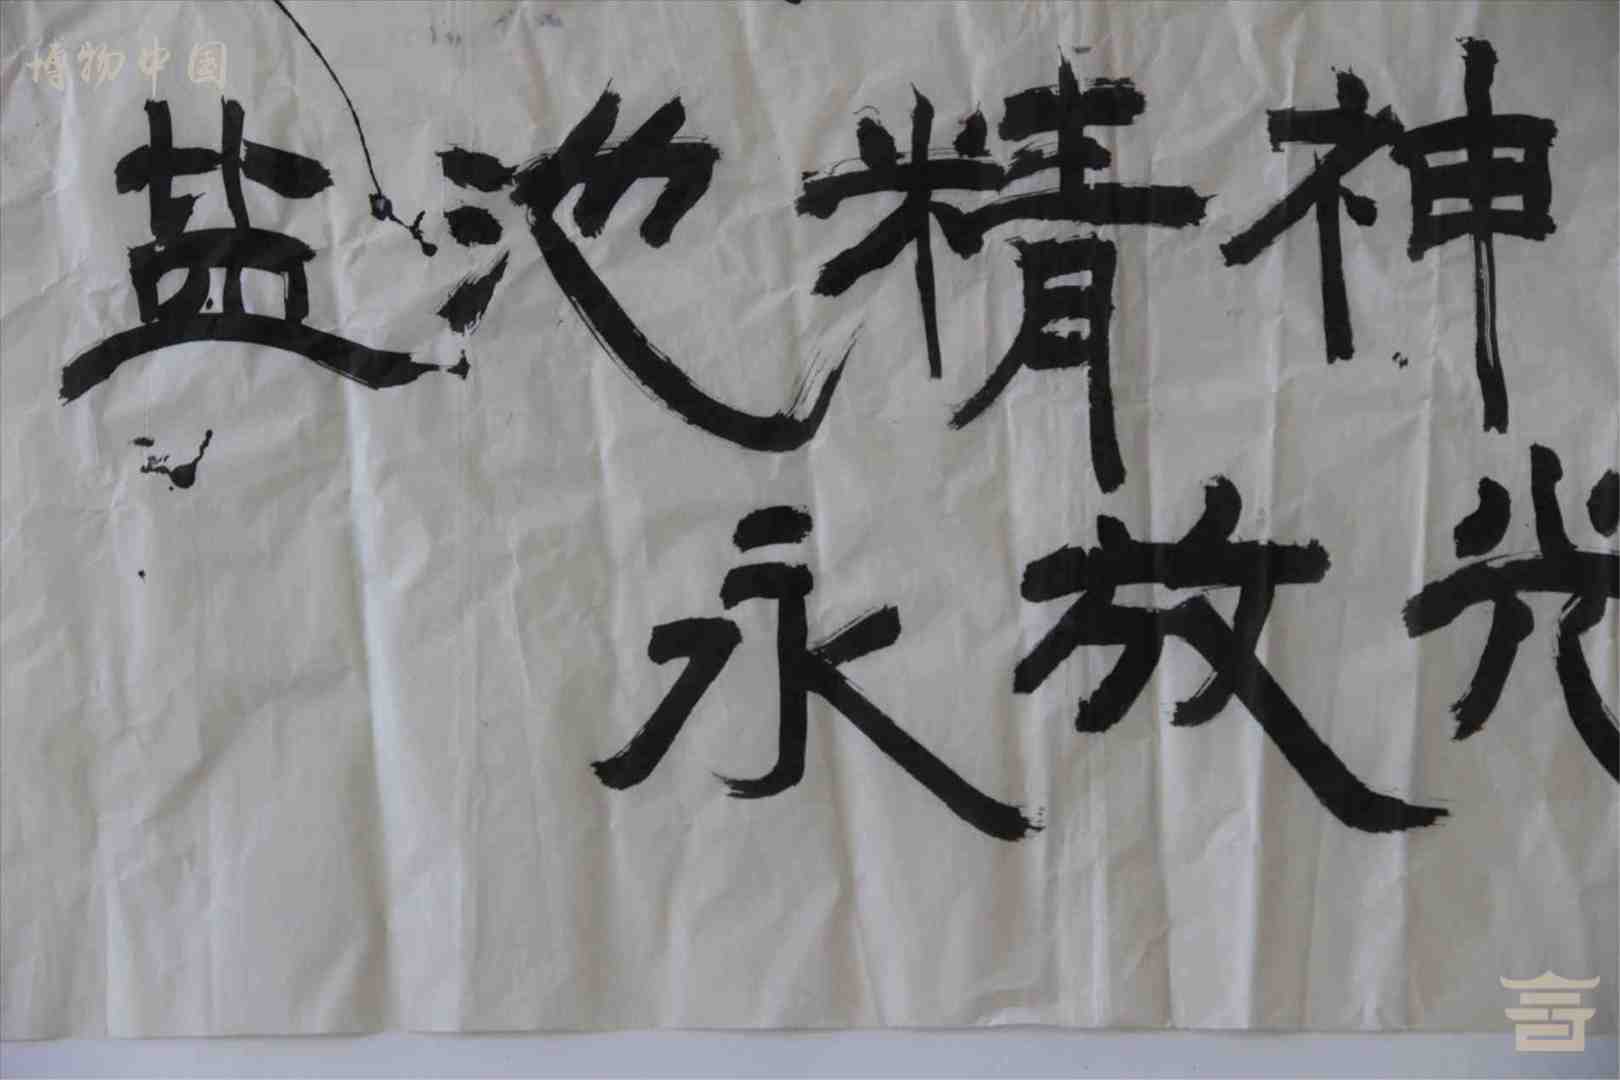 博物中国
盐池精神
永放光